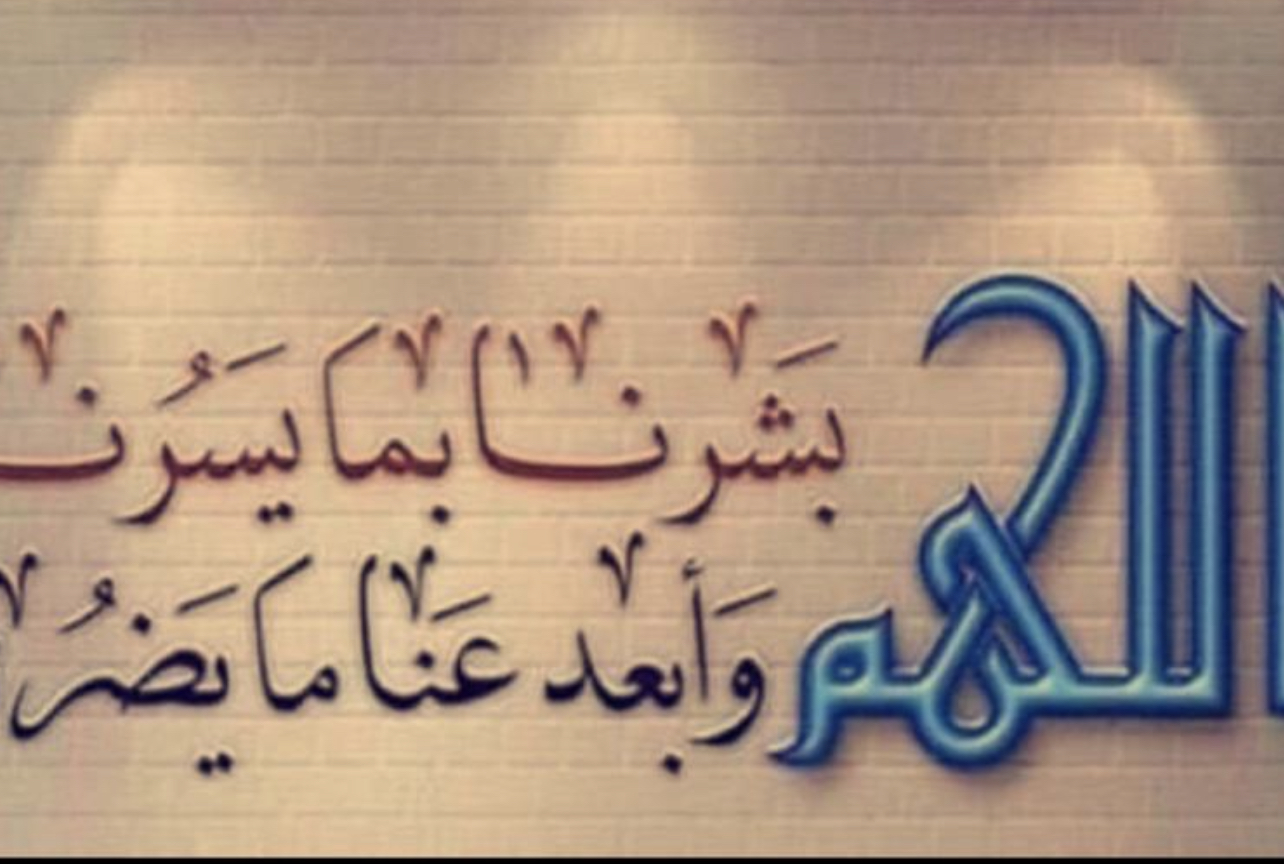 اللهم
بَشرنا بما يَسُرنا
وَأبعد عَنا ما يَضُر